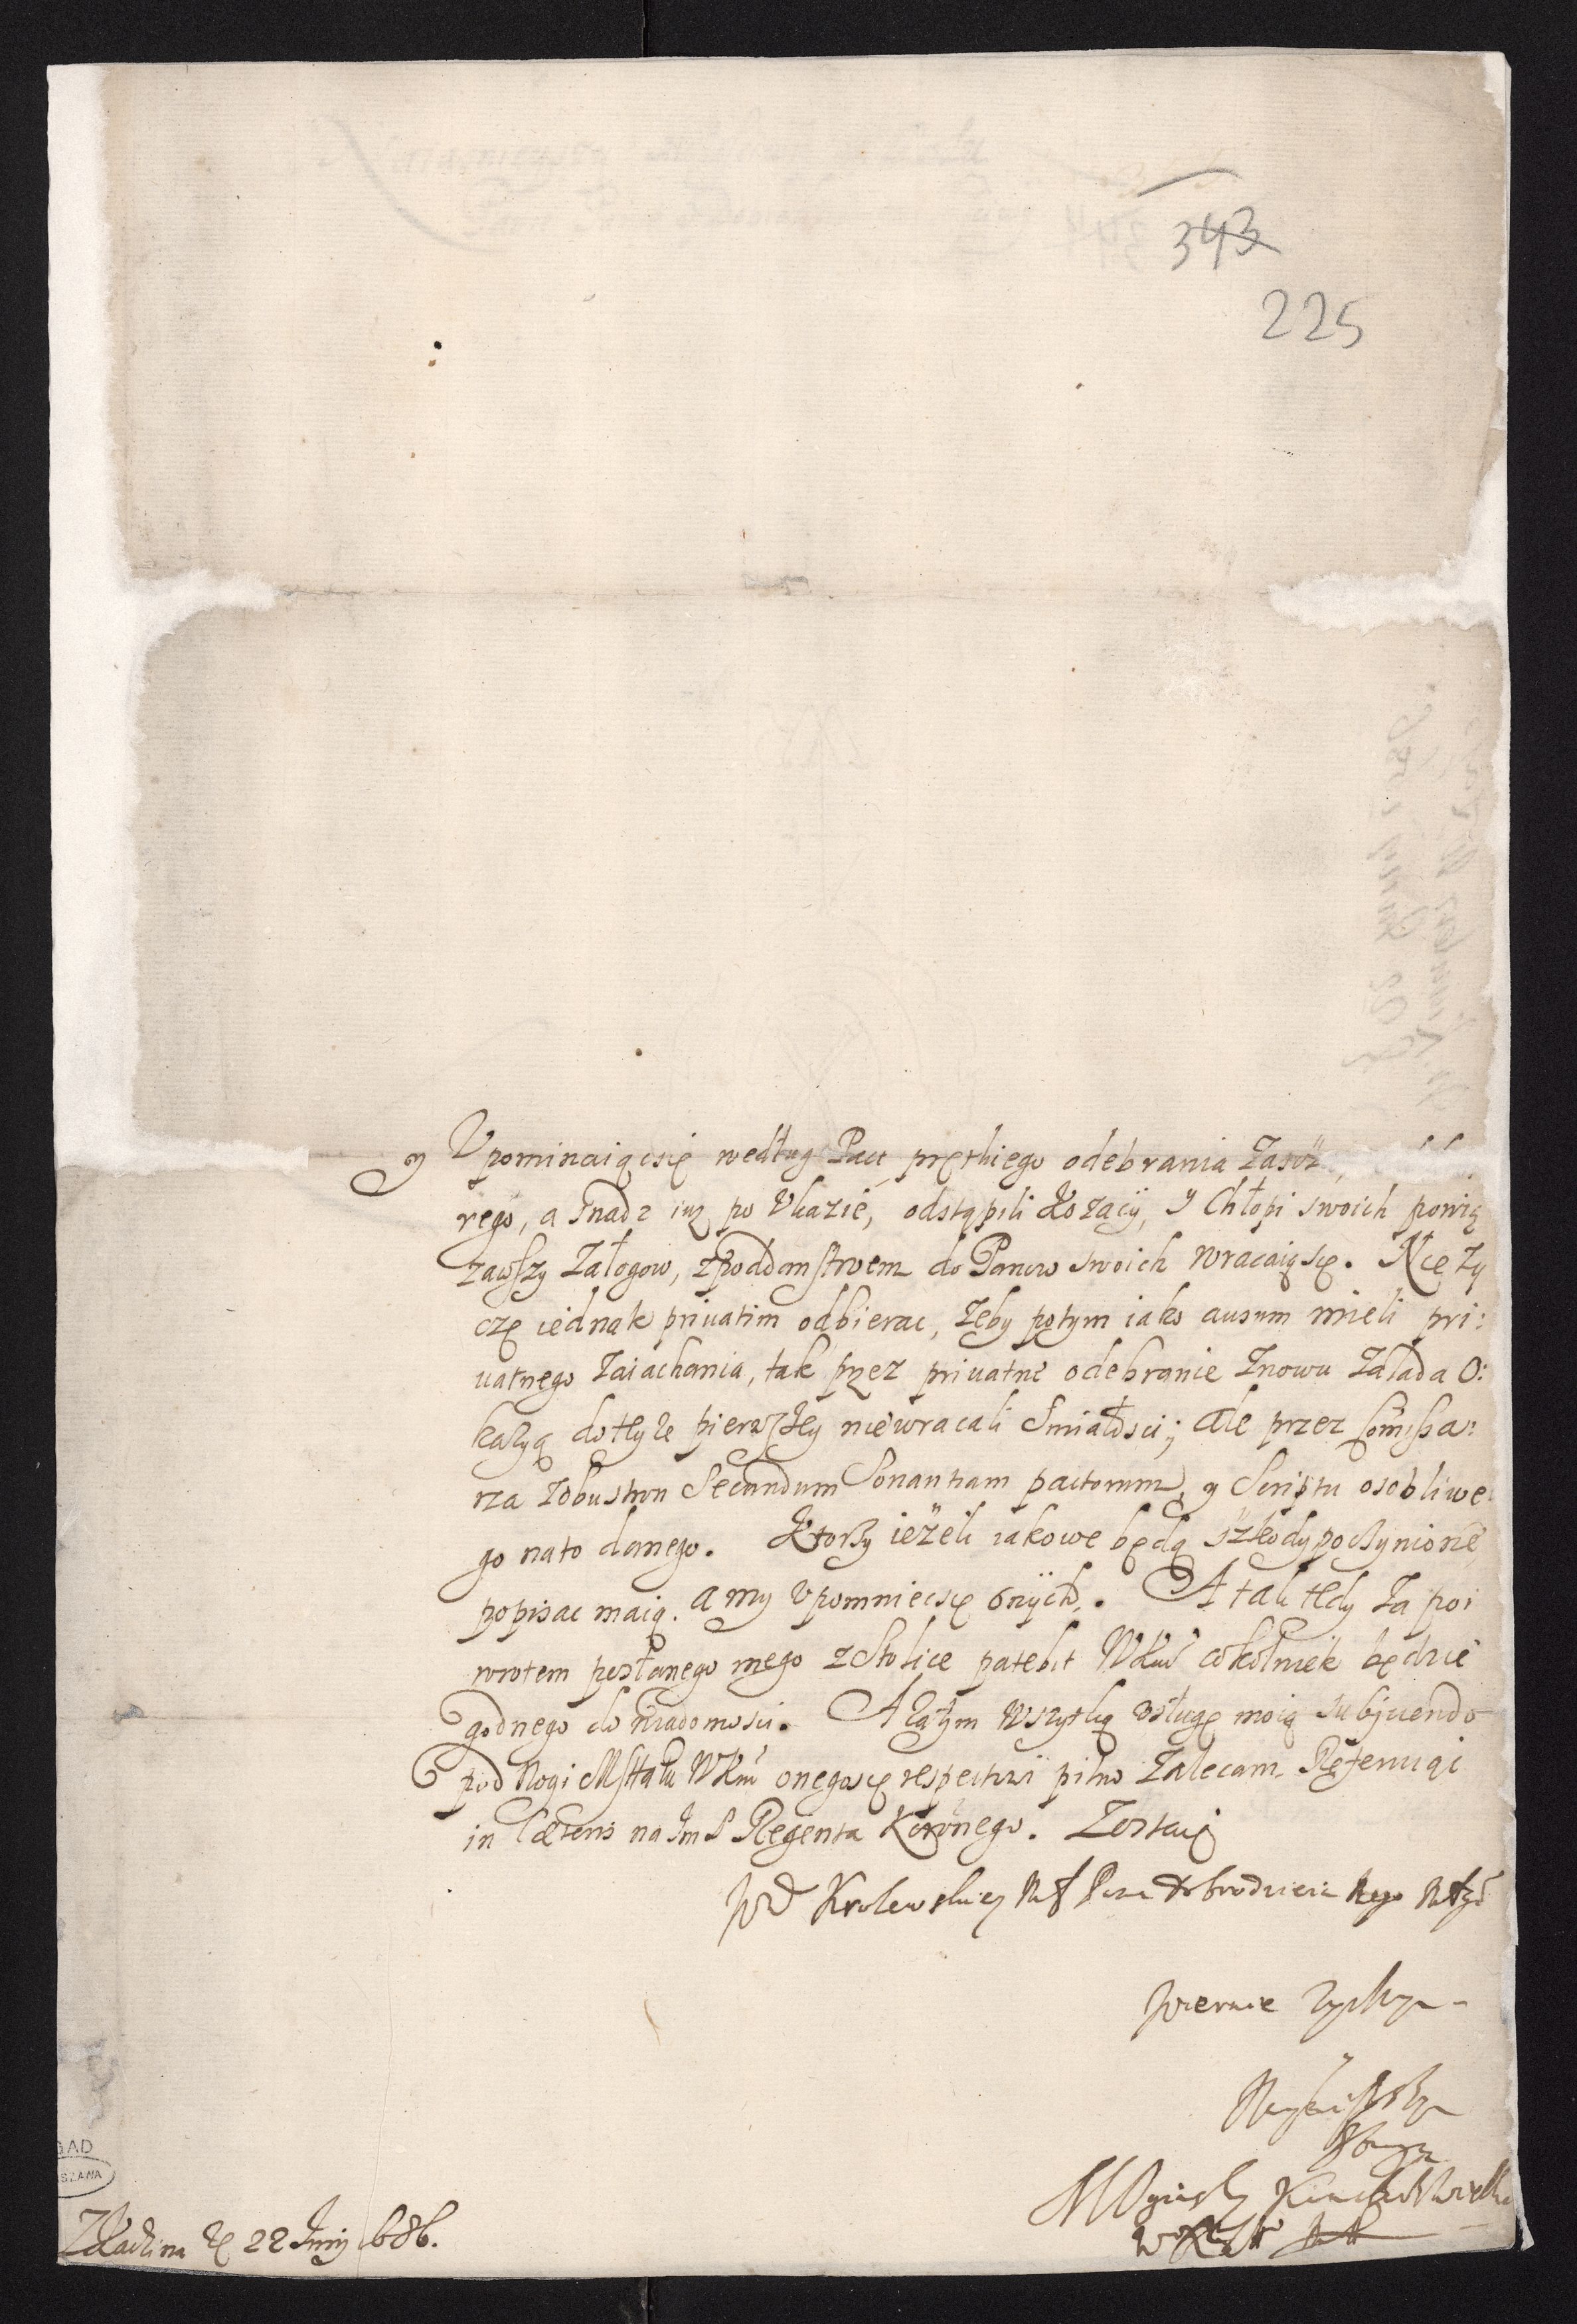 343
225
y Vpominaiącsię według Pact prętkiego odebrania
rego, a snadz iuz po Vkazie, odstąpili Kozacÿ, y Chłopi swoich powią
zawszy Załogow, zpoddanstwem do Panow swoich wracaiąsię. Nie zy
czę iednak priuatim odbierac, zeby potym iako ausum mieli pri:
uatnego zaiachania, tak przez priuatne odebranie znowu zalada O:
kazyą doteyze pierwszey niewracali Smiałosci; ale przez Comissa:
rza zobustron Secundum Sonantiam pactorum, y Scriptu osobliwe
go nato danego. Ktorzy ieżeli iakowe będą szkody poczynione,
popisac maią. a my vpomniecsię onÿch. A tak tedy za po:
wrotem posłanego mego zStolice patebit WKM cokolwiek będzie
godnego do wiadomosci. A zatym wszytką vsługę moią subijciendo
pod Nogi Mstatu WKM onegosię respectowi pilno zalecam. Referuiąc
in Cæteris na Jm P Regenta Koronnego. Zostaię
Krolewskiey Pana dobrodzieia mego
Wiernie
Nayniszszym
Sługą
MOginsky Kanclerz Wielki
WXL
ZRadzina d 22 Junij 686.
GAD
SZAWA